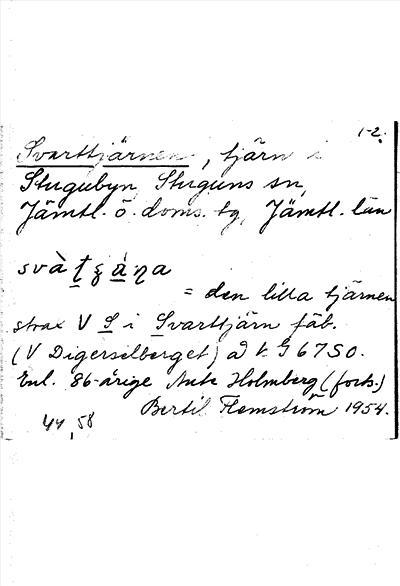 1-2.
Svarttjärnen, tjärn i
Stugubyn, Stuguns sn,
Jämtl. ö. doms. tg, Jämtl. län
svàt̠ʂa̠ŋa
= den lilla tjärnen
strax V S i Svarttjärn fäb.
(V Digerselberget) å k. G 67 SO.
Enl. 86-årige Ante Holmberg (forts.)
Bertil Flemström 1954.
44,58